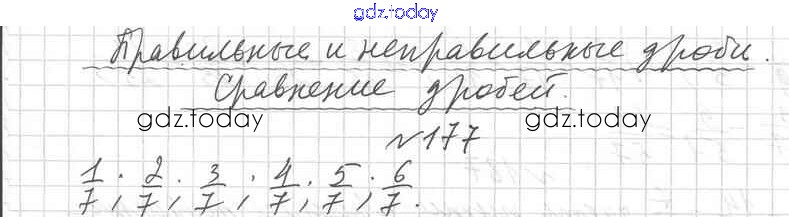 gdz.today
Правильные и неправильные дроби.
Сравнение дробей.
gdz.today gdz.today
№177
1/7; 2/7; 3/7; 4/7; 5/7; 6/7.